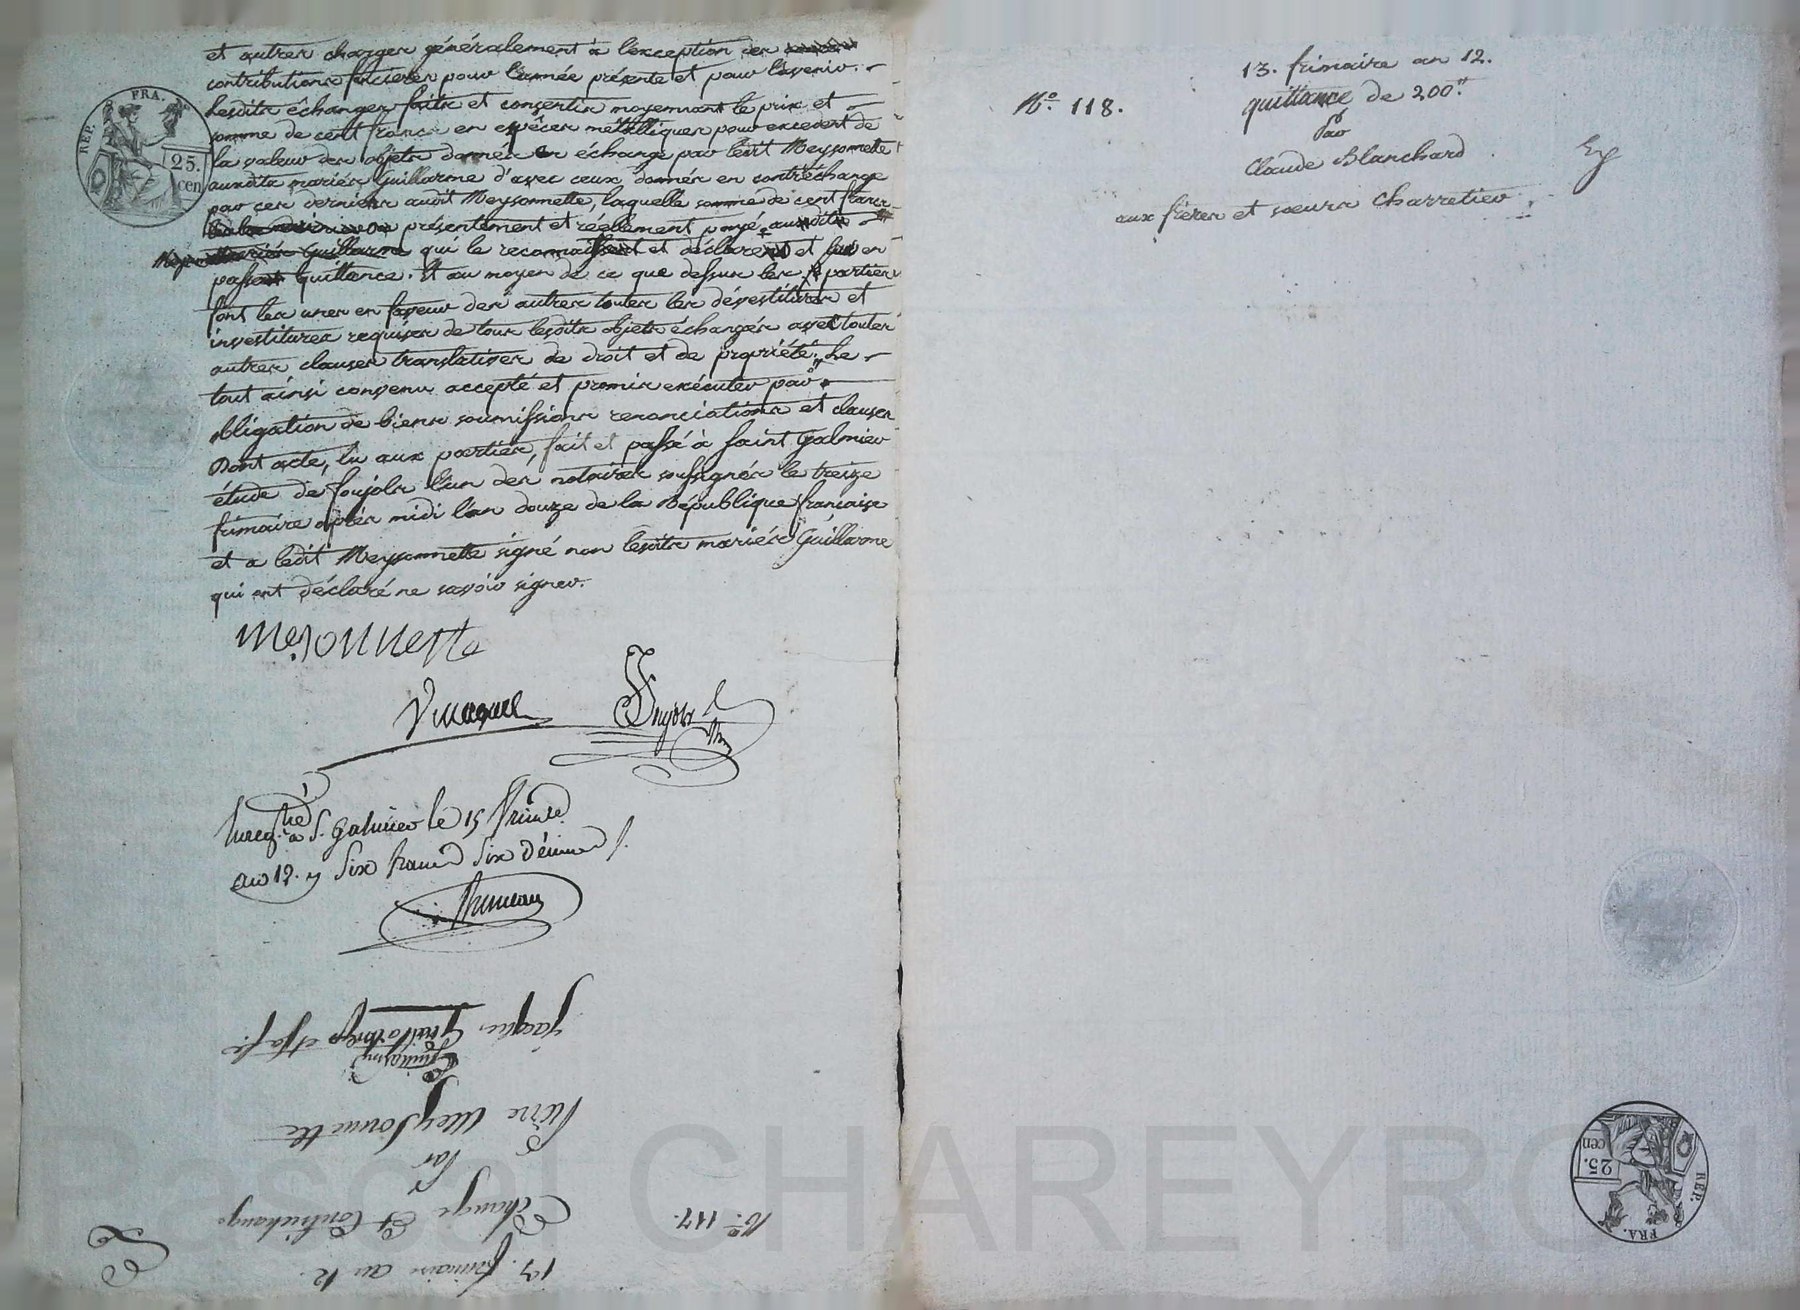 et autres charges généralement à l'exception des
contributions foncières pour l'année présente et pour l'avenir.
Lesdits échanges faits et consentis moyennant le prix et
somme de cent francs en espèces métalliques pour excedent de
la valeur des objets donnés en échange par ledit Meyssonnette
auxdits mariés Guillarme d'avec ceux donnés en contréchange
par ces derniers audit Meyssonnette, laquelle somme de cent francs
présentement et réellement payé auxdits
mariés Guillarme qui le reconnaissent et déclarent et en
passent Quittance. Et au moyen de ce que dessus les parties
font les unes en faveur des autres toutes les dévestitures et
investitures requises de tous lesdits objets échangés avec toutes
autres clauses translatives de droit et de propriété. Le
tout ainsi convenu accepté et promis exécuter par
obligation de biens soumissions renonciations et clauses
Dont acte, lu aux parties, fait et passé à Saint Galmier
étude de foujols l'un des notaires soussignés le treize
frimaire après midi l'an douze de la République française
et a ledit Meyssonnette signé non lesdits mariés Guillarme
qui ont déclaré ne savoir signer.
mesonnette
REP. FRA.
25.
cen
a S. Galmier le 15 frim
an 12. Six francs Six décimes
13. frimaire an 12.
N.º 117.
Echange Et Contréchange
Par
Pierre Meyssonnette
Guillarme
Jacques et sa f.e
13. frimaire an 12.
N.º 118.
quittance de 200.
Par
Claude Blanchard
aux frères et soeurs Charretier
REP. FRA.
25.
cen
Pascal CHAREYRON